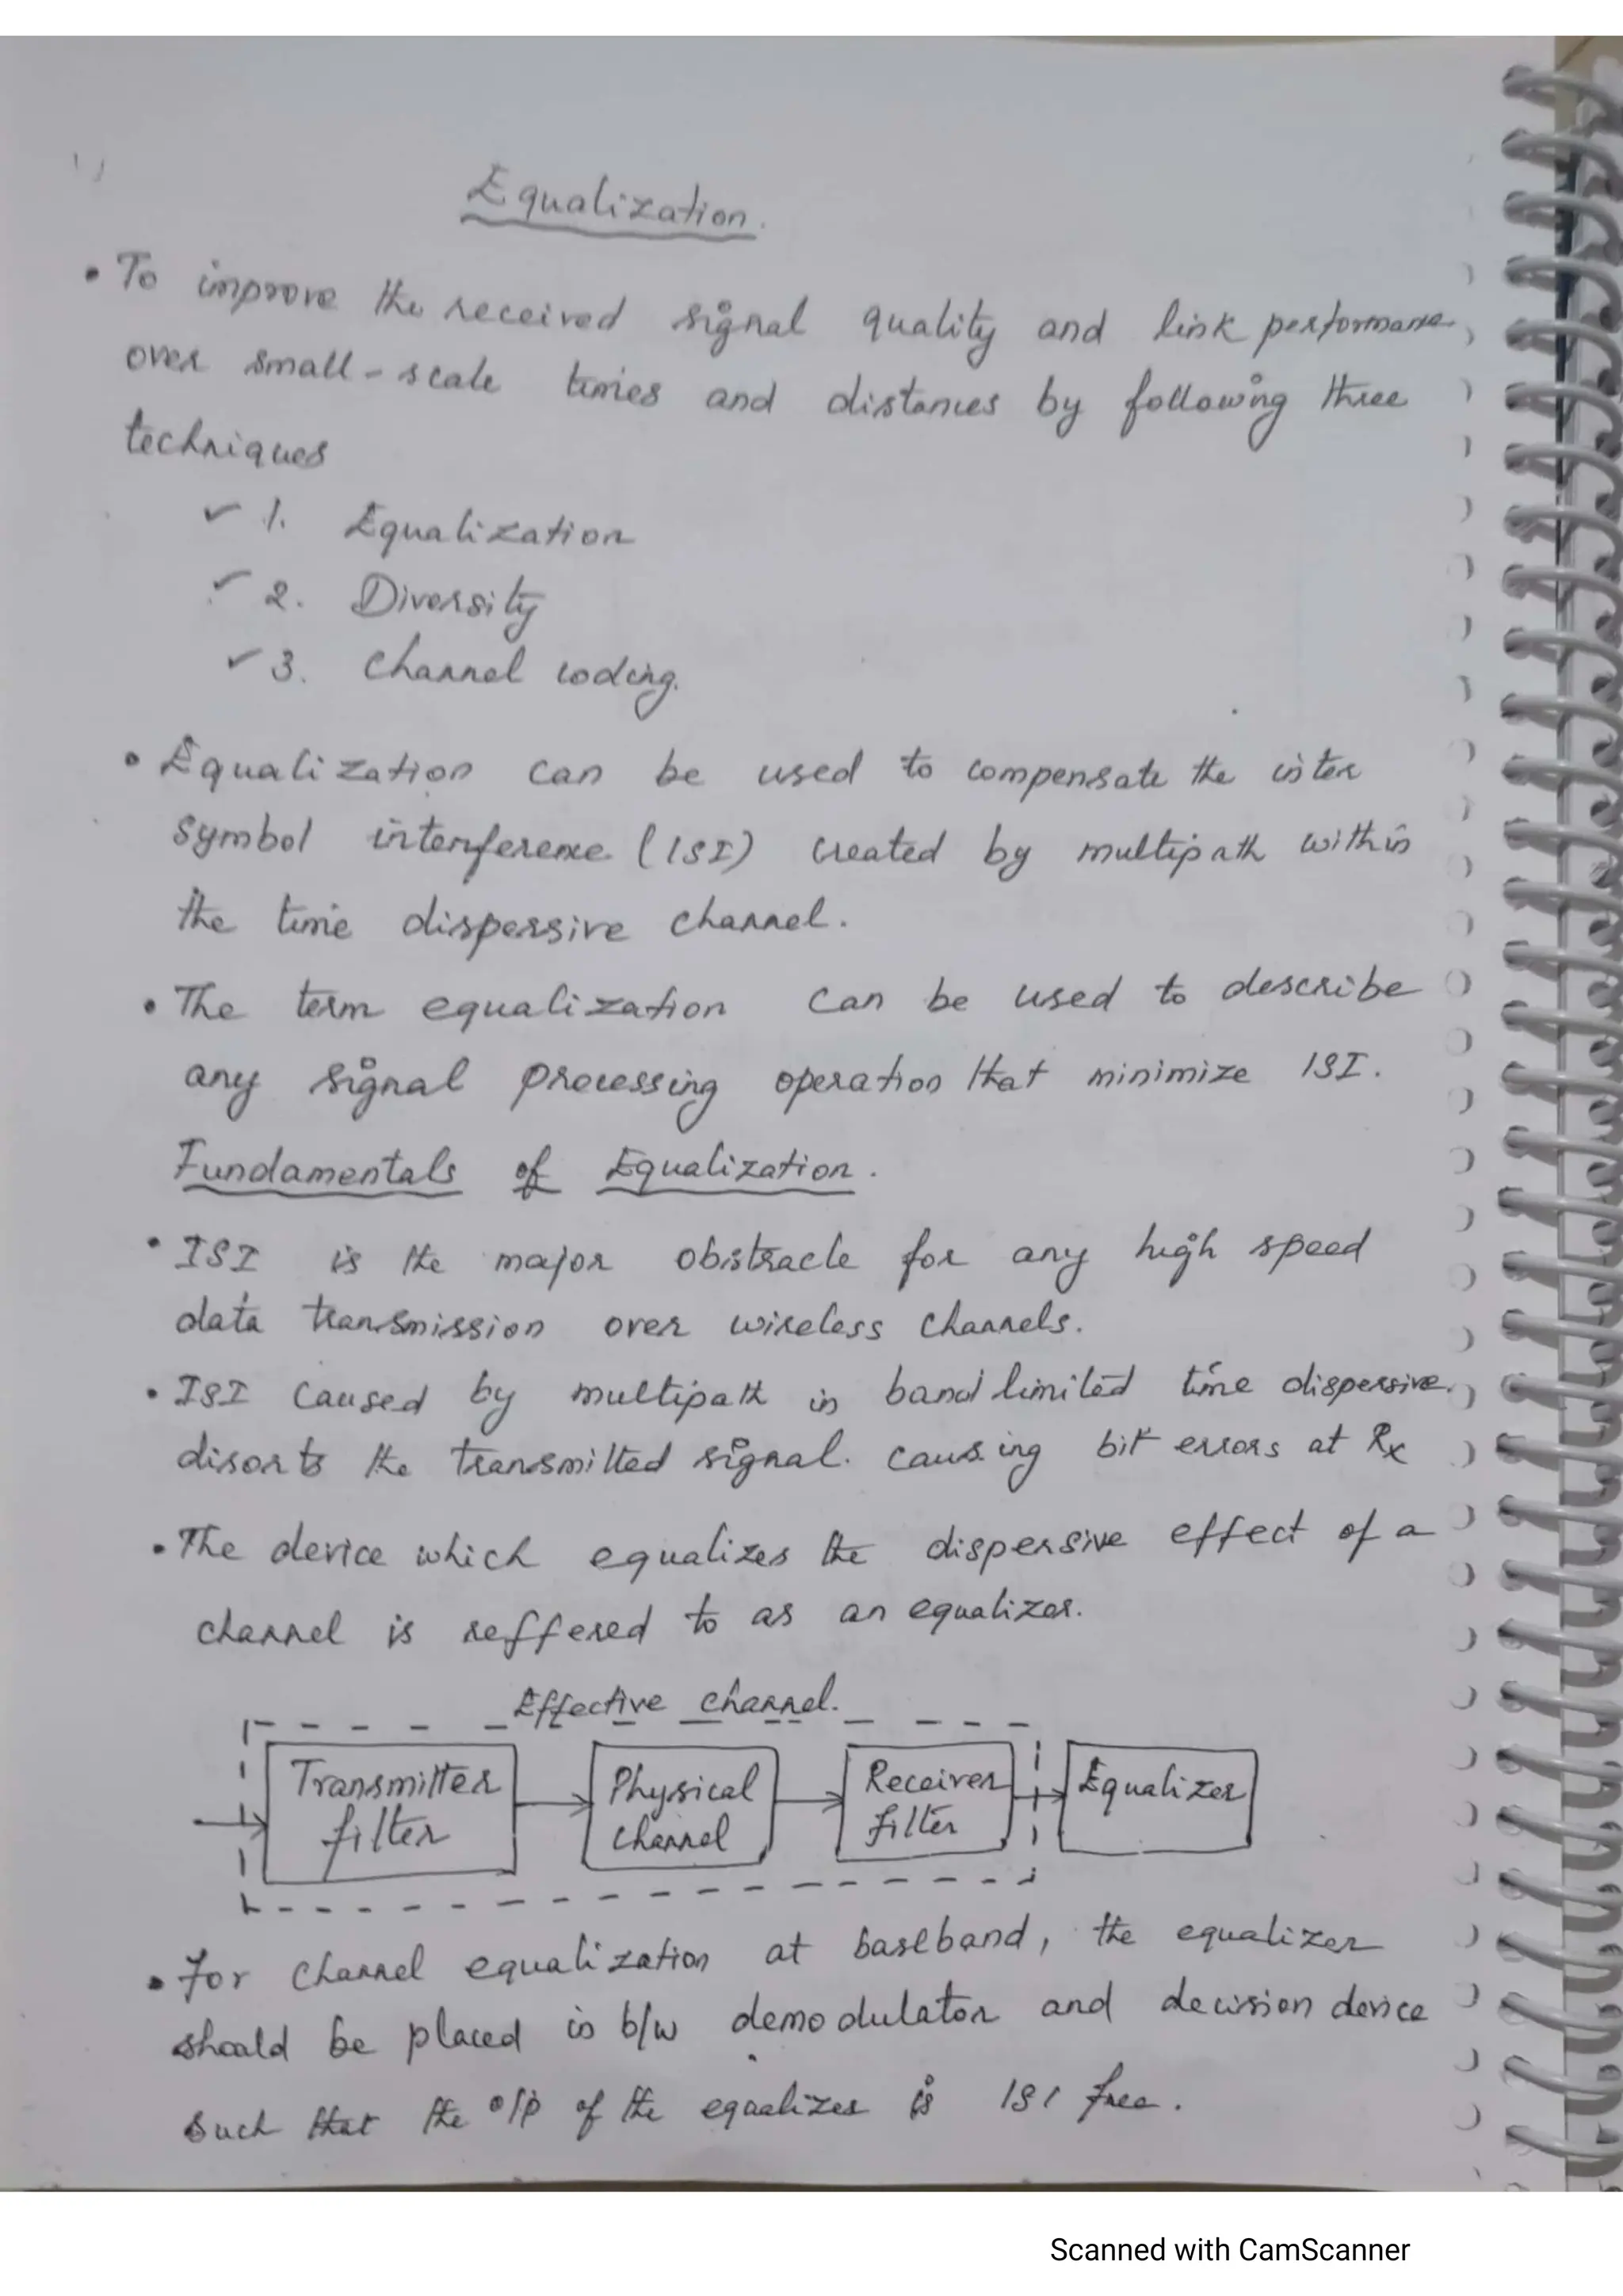 1)
Equalization.
• To improve the received signal quality and link performance
over small-scale times and distances by following three
techniques
✓ 1. Equalization
✓ 2. Diversity
✓ 3. Channel coding.
• Equalization can be used to compensate the inter
symbol interference (ISI) created by multipath within
the time dispersive channel.
• The term equalization can be used to describe
any signal processing operation that minimize ISI.
Fundamentals of Equalization.
• ISI is the major obstracle for any high speed
data transmission over wireless channels.
• ISI caused by multipath in bandlimited time dispersive
disorts the transmitted signal. causing bit errors at Rx
• The device which equalizes the dispersive effect of a
channel is reffered to as an equalizer.
Effective channel.
Transmitter filter
Physical channel
Receiver filter
Equalizer
• For channel equalization at baseband, the equalizer
should be placed in b/w demodulator and decision device
such that the o/p of the equalizer is ISI free.
Scanned with CamScanner